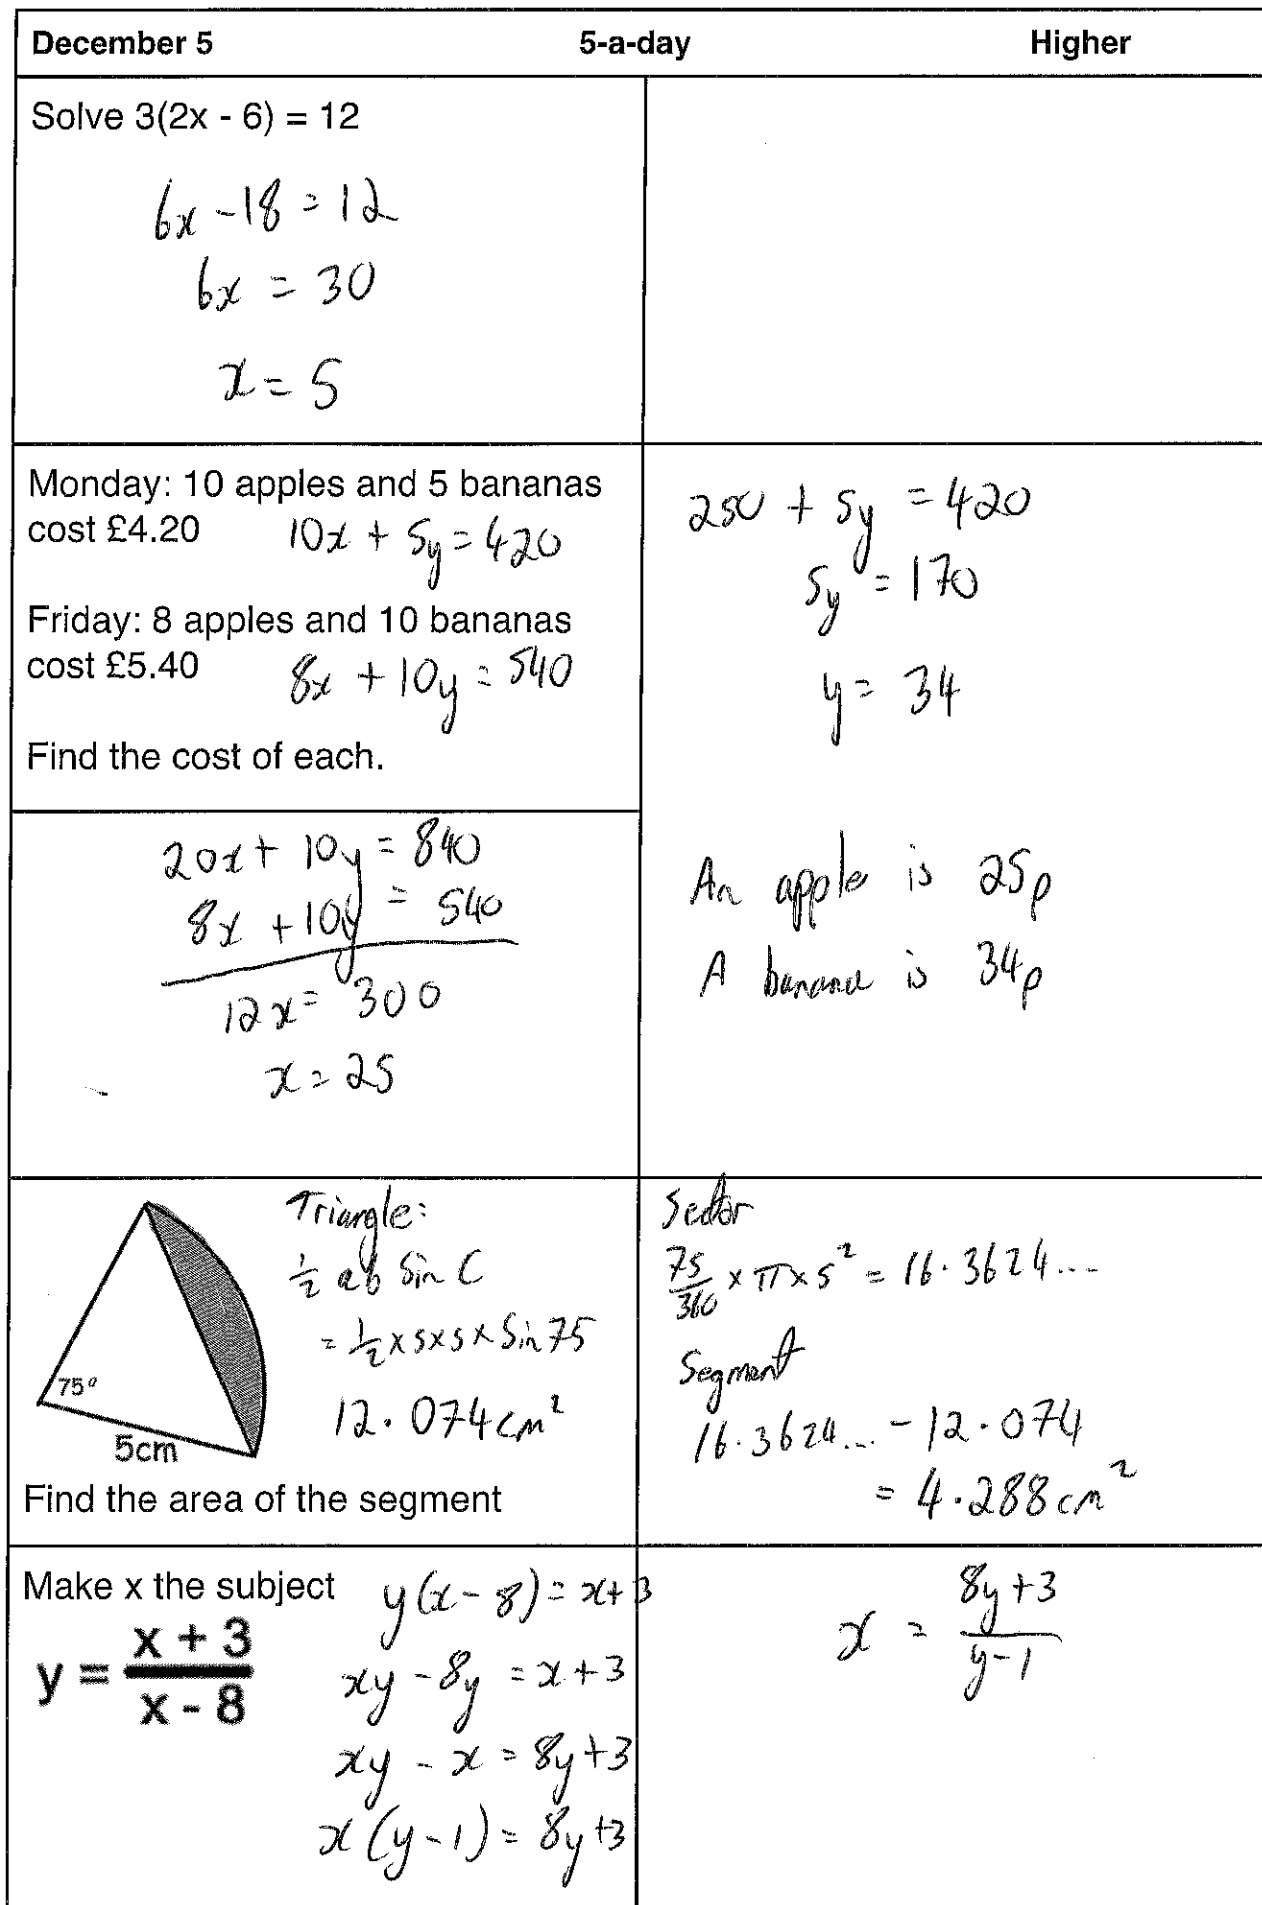 December 5 5-a-day Higher
Solve 3(2x - 6) = 12
6x - 18 = 12
6x = 30
x = 5
Monday: 10 apples and 5 bananas
cost £4.20 10x + 5y = 420
Friday: 8 apples and 10 bananas
cost £5.40 8x + 10y = 540
Find the cost of each.
250 + 5y = 420
5y = 170
y = 34
20x + 10y = 840
8x + 10y = 540
12x = 300
x = 25
An apple is 25p
A banana is 34p
75°
5cm
Find the area of the segment
Triangle:
½ ab Sin C
= ½ × 5 × 5 × Sin 75
12.074 cm²
Sector
75/360 × π × 5² = 16.3624...
Segment
16.3624... - 12.074
= 4.288 cm²
Make x the subject
y = x + 3 / x - 8
y(x - 8) = x + 3
xy - 8y = x + 3
xy - x = 8y + 3
x(y - 1) = 8y + 3
x = 8y + 3 / y - 1